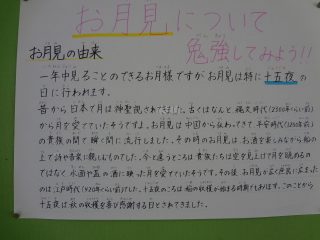 お月見について
勉強してみよう!!
お月見の由来
一年中見ることのできるお月様ですが、お月見は特に十五夜の
日に行われます。
昔から日本で月は神聖視されてきました。古くはなんと、縄文時代(2300年くらい前)
から月を愛でていたそうですよ。お月見は中国から伝わってきて平安時代(1200年前)
の貴族の間で瞬く間に流行しました。その時のお月見はお酒を楽しみながら船の
上で詩や音楽に親しむものでした。今と違うところは貴族たちは空を見上げて月を眺めるの
ではなく水面や盃の酒に映った月を愛でていたそうです。その後お月見が広く庶民に広まった
のは江戸時代(420年くらい前)でした。十五夜のころは稲の収穫が始まる時期でもあります。このことから
十五夜は秋の収穫を喜び感謝する日とされてきました。